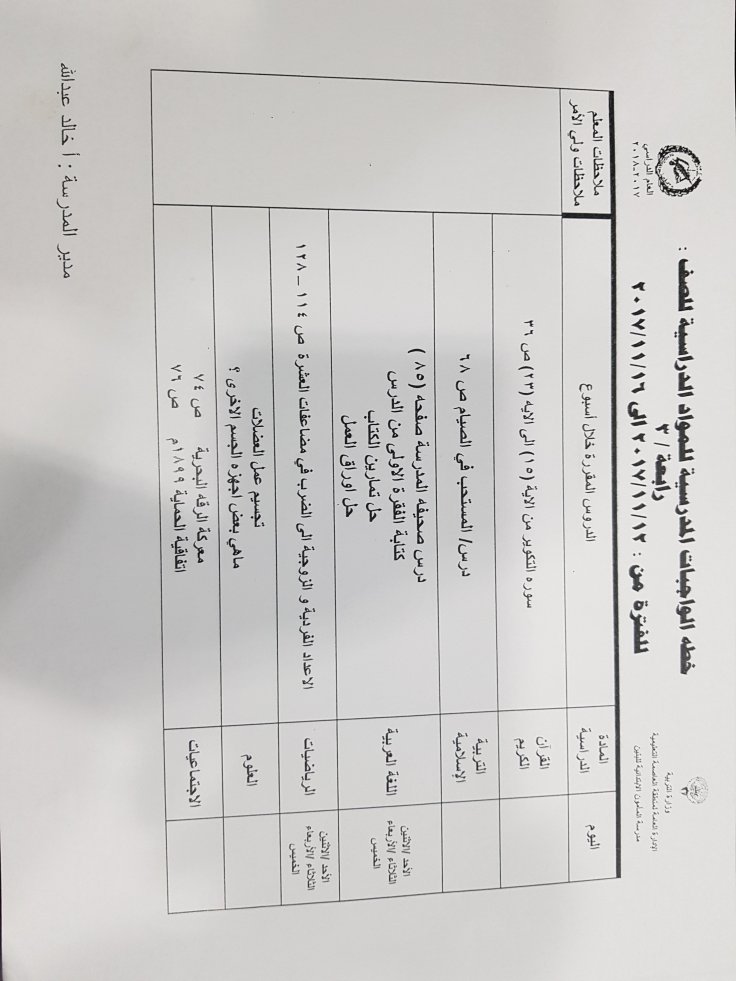 وزارة التربية
الإدارة العامة لمنطقة العاصمة التعليمية
مدرسة المأمون الابتدائية للبنين
خطه الواجبات المدرسية للمواد الدراسية للصف :
رابعة / ٣
للفترة من : ٢٠١٧/١١/١٢ الى ٢٠١٧/١١/١٦
العام الدراسي
٢٠١٧-٢٠١٨
اليوم
المادة الدراسية
الدروس المقررة خلال أسبوع
ملاحظات المعلم
ملاحظات ولي الأمر
القرآن الكريم
سوره التكوير من الاية (١٥) الى الايه (٢٣) ص ٣٦
التربية الإسلامية
درس/ المستحب في الصيام ص ٦٨
الأحد /الاثنين
الثلاثاء /الأربعاء
الخميس
اللغة العربية
درس صحيفه المدرسة صفحه (٨٥)
كتابة الفقرة الاولى من الدرس
حل تمارين الكتاب
حل اوراق العمل
الأحد /الاثنين
الثلاثاء /الأربعاء
الخميس
الرياضيات
الاعداد الفردية و الزوجية الى الضرب في مضاعفات العشرة ص ١١٤ – ١٢٨
العلوم
تجسيم عمل العضلات
ماهي بعض اجهزه الجسم الاخرى ؟
الاجتماعيات
معركة الرقه البحرية ص ٧٤
اتفاقية الحماية ١٨٩٩م ص ٧٦
مدير المدرسة : أ خالد عبدالله